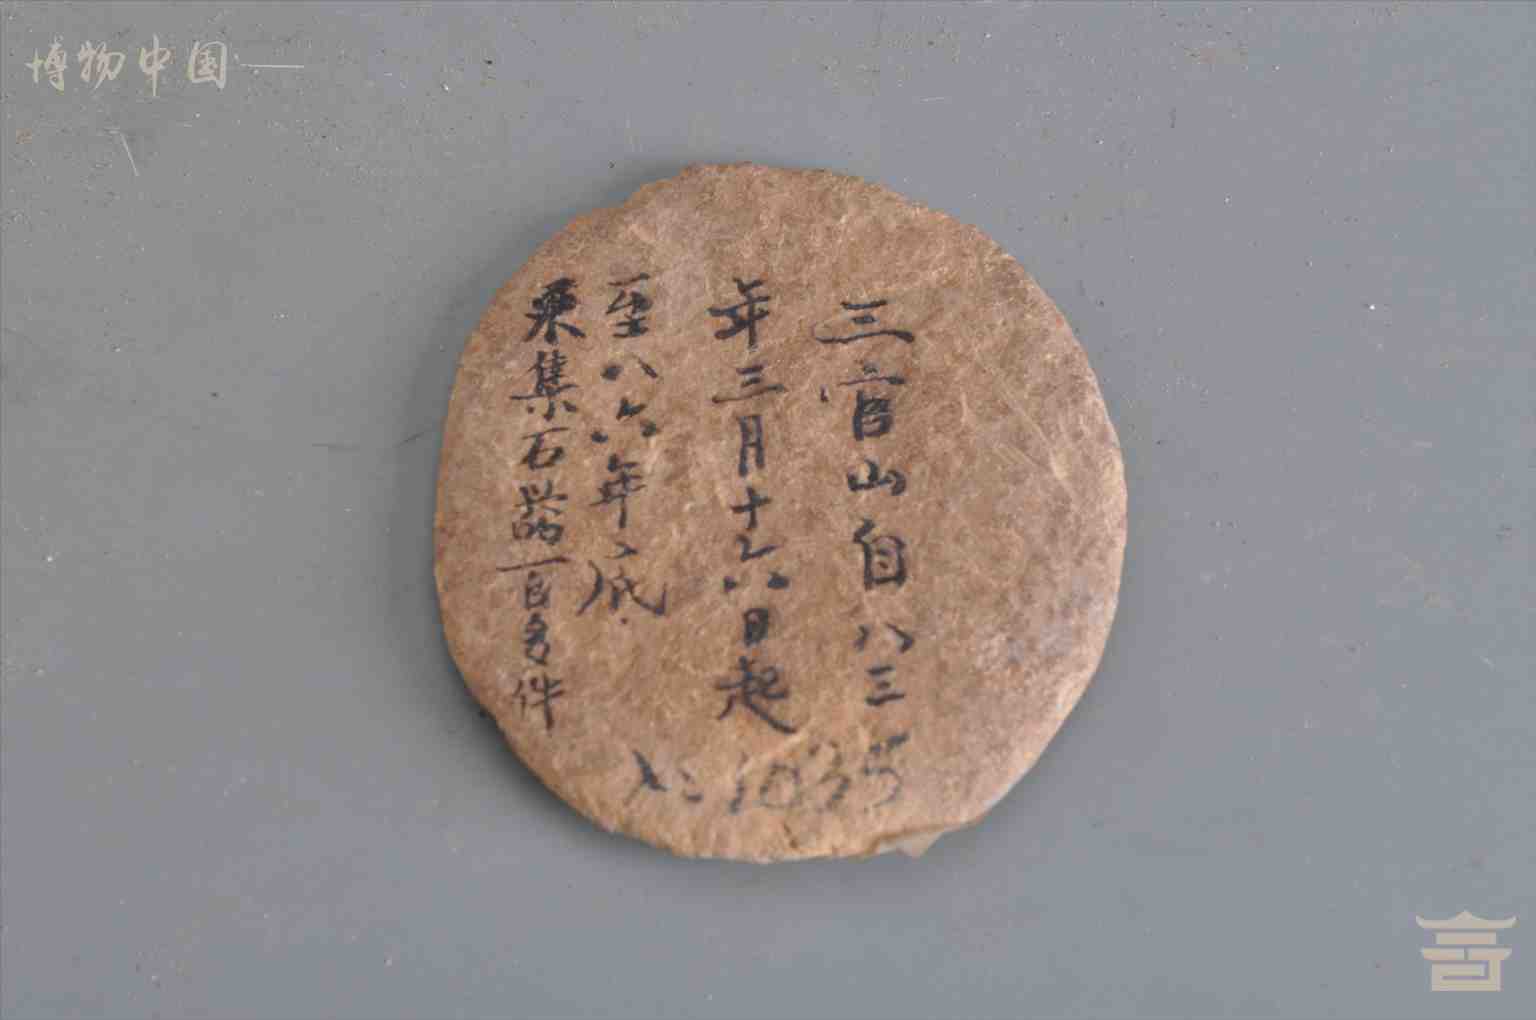 博物中国
三官山自八三
年三月十六日起
至八六年底
采集石器一百多件